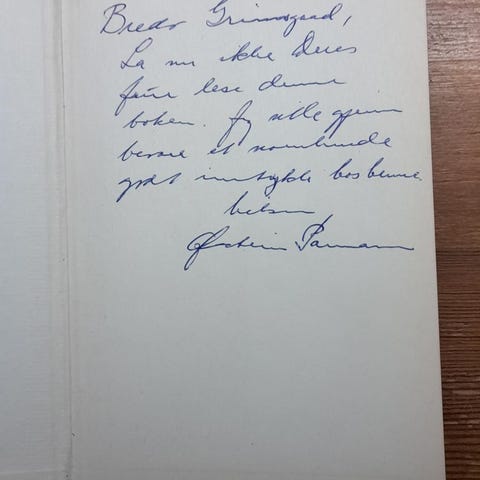 Bredo Grimsgaard,
La nu ikke Deres
frue lese denne
boken. Jeg ville gjerne
bevare et noenlunde
godt inntykk hos henne.
hilsen
Øistein Parmann